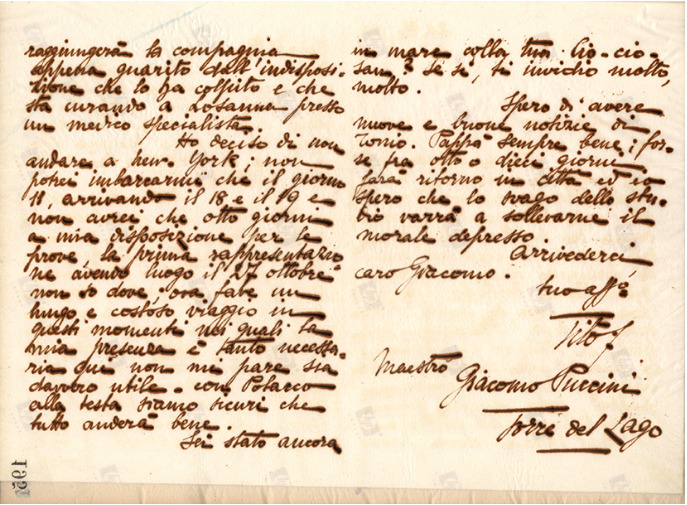 raggiungerà la compagnia
appena guarito dall'indisposi-
zione che lo ha colpito e che
sta curando a Losanna presso
un medico specialista.
Ho deciso di non
andare a New-York; non
potrei imbarcarmi che il giorno
11, arrivando il 18 e il 19 e
non avrei che otto giorni
a mia disposizione per le
prove la prima rappresentazio
ne avendo luogo il 27 ottobre
non so dove: ora fare un
lungo e costoso viaggio in
questi momenti nei quali la
mia presenza è tanto necessa-
ria qui non mi pare sia
davvero utile. con Polacco
alla testa siamo sicuri che
tutto anderà bene.
Sei stato ancora
in mare colla tua Cio-cio-
san? Se sì, ti invidio molto,
molto.
Spero di avere
nuove e buone notizie di
Tonio. Pappà sempre bene; for-
se fra otto o dieci giorni
farà ritorno in città ed io
spero che lo svago dello stu-
dio varrà a sollevarne il
morale depresso.
Arrivederci
caro Giacomo.
tuo affo
Tito
Maestro
Giacomo Puccini
Torre del Lago
195